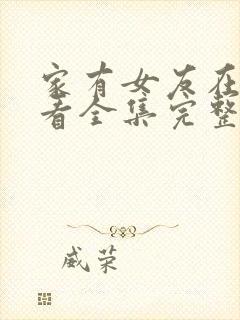 家有女友在
看全集完整
威荣